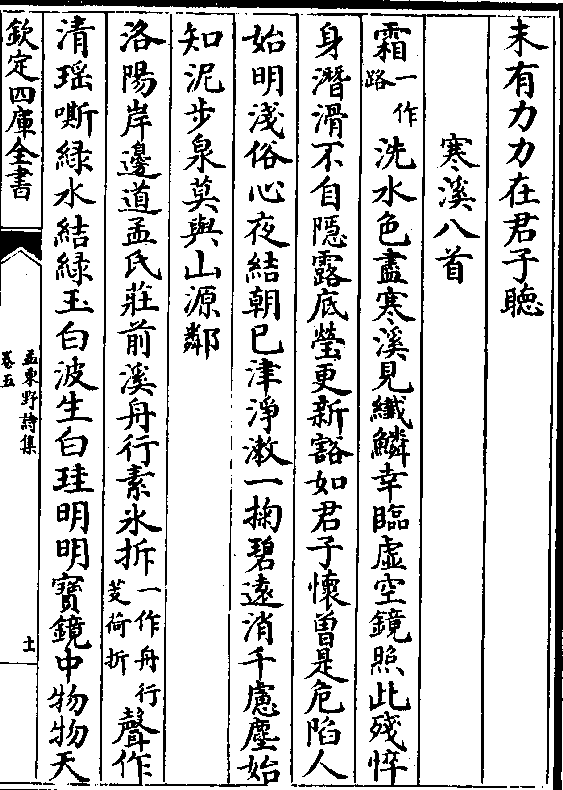 未有力力在君子聽
寒溪八首
霜一作路洗水色盡寒溪見纖鱗幸臨虛空鏡照此殘悴
身潛滑不自隱露底瑩更新豁如君子懷曾是危陷人
始明淺俗心夜結朝已津淨漱一掬碧遠消千慮塵始
知泥步泉莫與山源鄰
洛陽岸邊道孟氏莊前溪舟行素氷拆一作舟行芰荷折聲作
清瑶嘶緑水結緑玉白波生白珪明明寳鏡中物物天
欽定四庫全書
孟東野詩集
卷五
十一